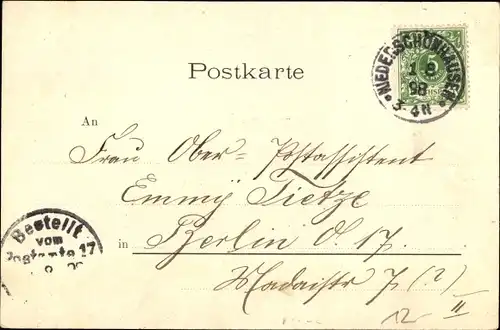 NIEDER-SCHÖNHAUSEN
1 8
98
3-4N
5
Postkarte
An
Frau Ober-Postassistent
Emmy Tietze
in Berlin O. 17.
Madaistr 7 (?)
Bestellt
vom
Postamte 17
12
II